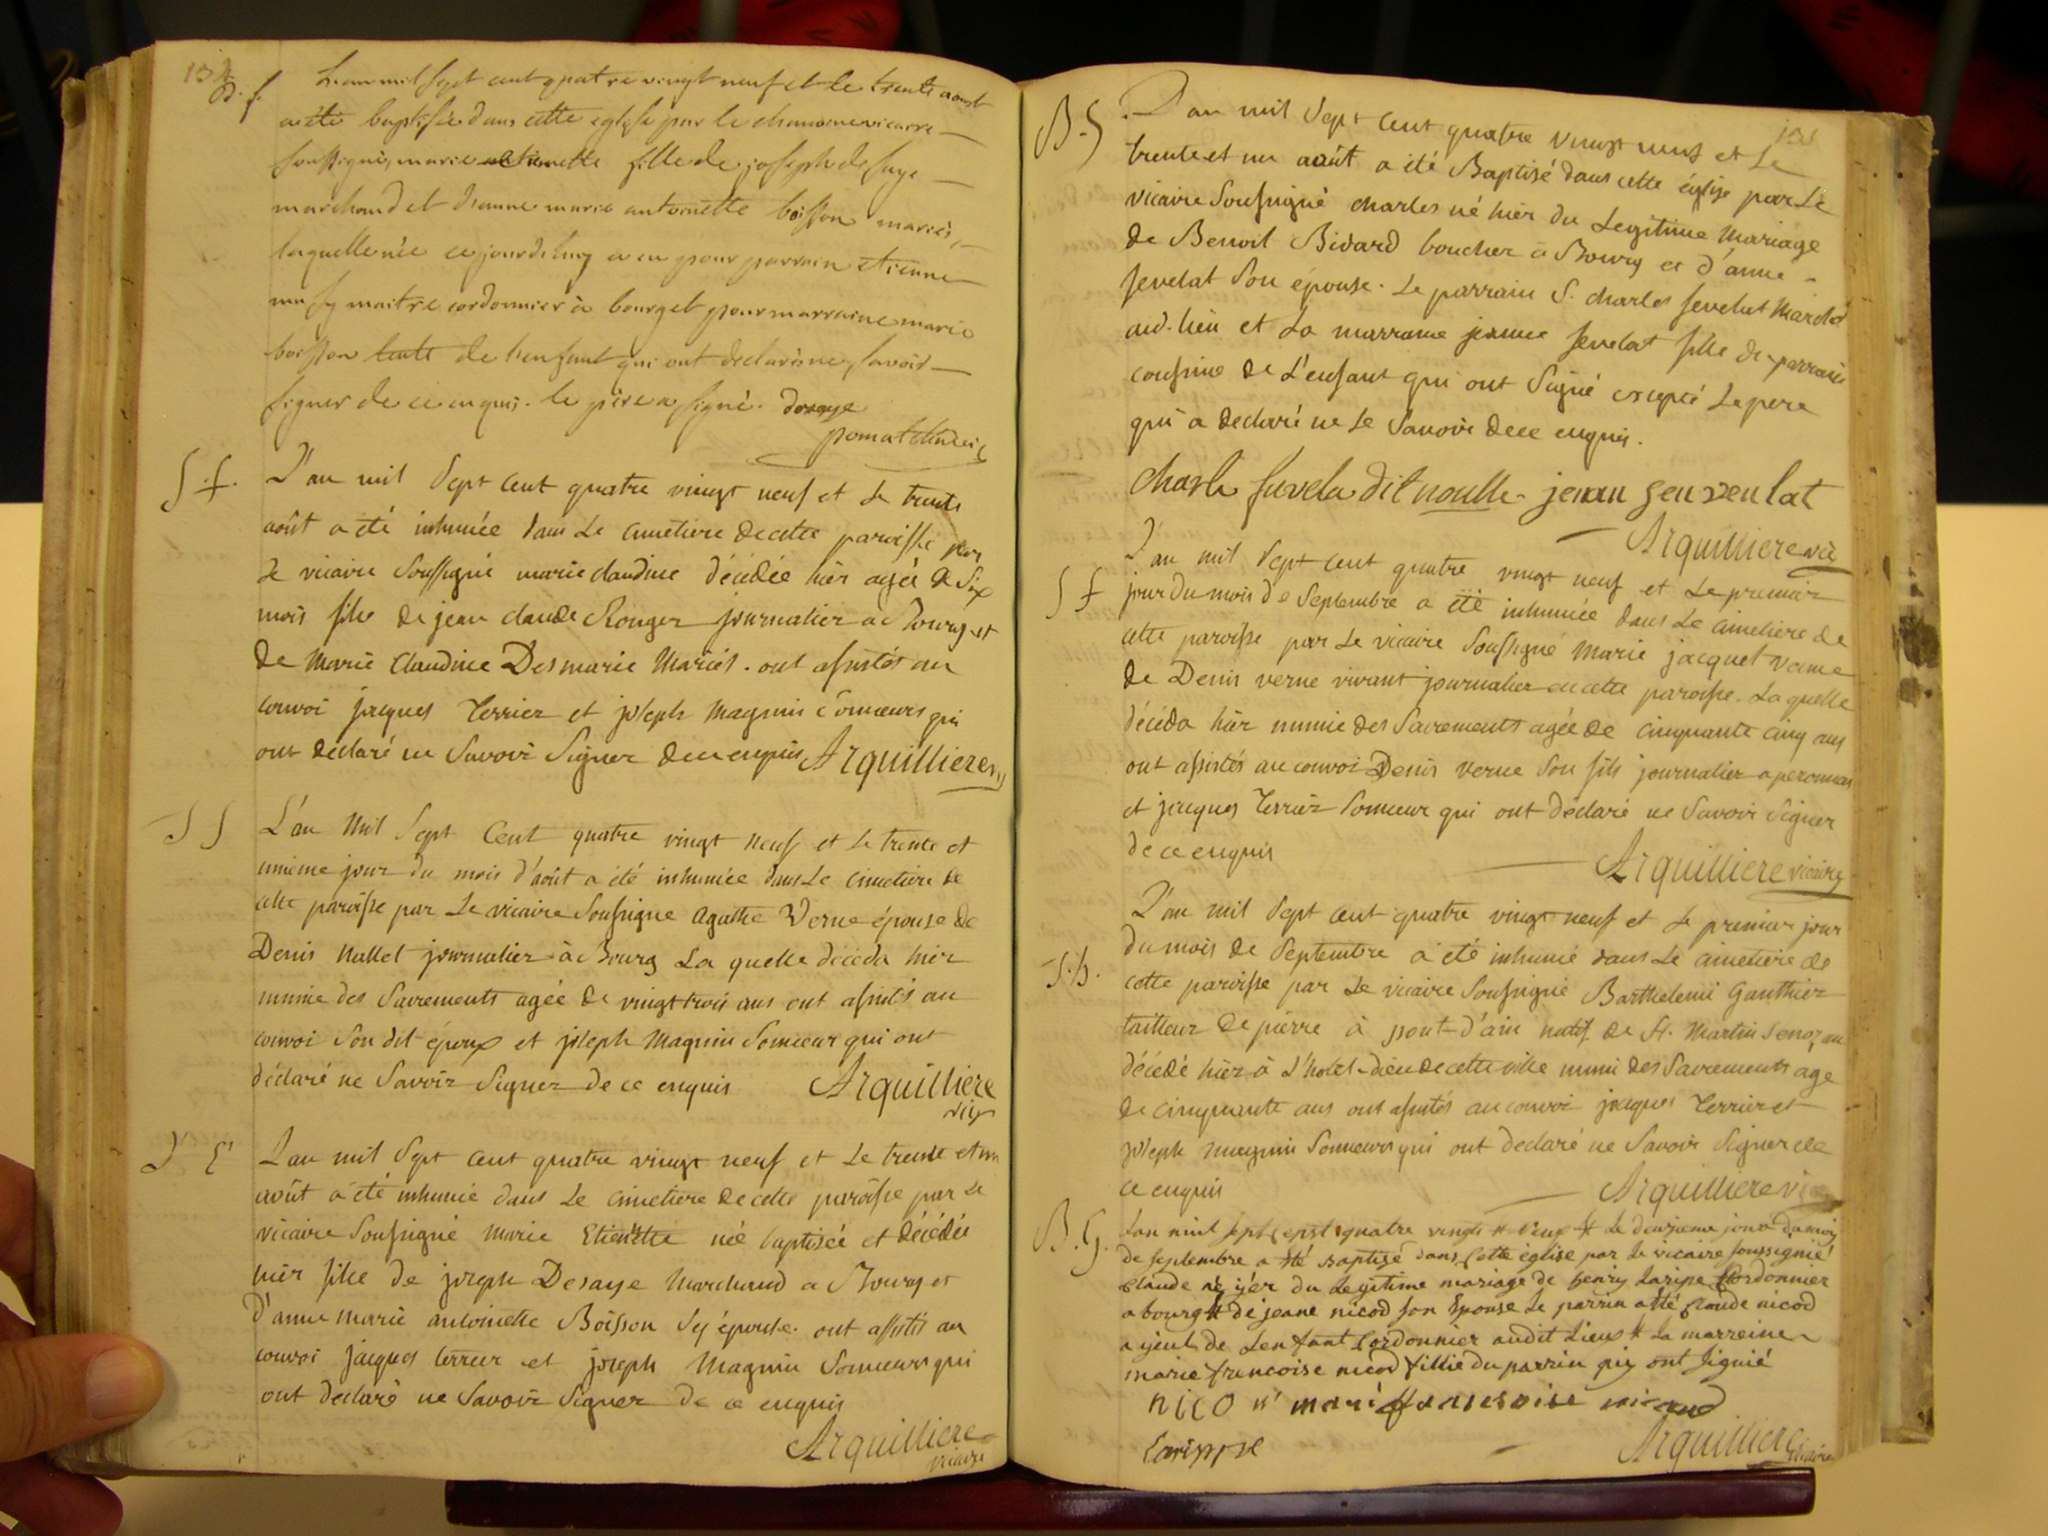 134
B. f.
L'an mil sept cent quatre vingt neuf et le trente aoust
a été baptisée dans cette eglise par le chanoine vicaire
soussigné, marie etiennette fille de joseph desaye
marchand et d'anne marie antoinette boisson mariés,
laquelle née ce jourd'huy a eu pour parrain etienne
maitre cordonnier à bourg et pour marraine marie
boisson tante de l'enfant qui ont declaré ne savoir
signer de ce enquis. le père a signé. desaye
S. f.
L'an mil Sept Cent quatre vingt neuf et Le trente
août a été inhumée dans Le cimetiere de cette paroisse par
Le vicaire Soussigné marie claudine décédée hier agée de Six
mois fille de jean claude Ronger journalier à Bourg et
de Marie Claudine Desmarie Mariés. ont assistés au
convoi jacques Terrier et joseph Magnin Sonneurs qui
ont déclaré ne Savoir Signer de ce enquis Arquilliere
S S
L'an Mil Sept Cent quatre vingt neuf et Le trente et
unieme jour du mois d'août a été inhumée dans Le cimetiere de
cette paroisse par Le vicaire Soussigné Agathe Verne épouse de
Denis Nallet journalier à Bourg La quelle décéda hier
munie des Sacrements agée de vingt trois ans ont assistés au
convoi Son dit époux et joseph Magnin Sonneur qui ont
déclaré ne Savoir Signer de ce enquis Arquilliere
vic
L'an mil Sept cent quatre vingt neuf et Le trente et un
août a été inhumée dans Le cimetiere de cette paroisse par Le
vicaire Soussigné Marie Etiennette née baptisée et décédée
hier fille de joseph Desaye Marchand a Bourg et
d'anne marie antoinette Boisson S'y épouse. ont assistés au
convoi jacques terrier et joseph Magnin Sonneurs qui
ont déclaré ne Savoir Signer de ce enquis
Arquilliere
vicaire
135
B. S
L'an mil Sept Cent quatre vingt neuf et Le
trente et un août a été Baptisé dans cette église par Le
vicaire Soussigné charles né hier du Legitime Mariage
de Benoit Bidard boucher à Bourg et d'anne
Jevelat Son épouse. Le parrain S. charles Jevelat March.d
aud. lieu et La marraine jeanne Jevelat fille du parrain
cousine de L'enfant qui ont Signé excepté Le pere
qui a declaré ne Le Savoir de ce enquis.
charle Juvela dit noulle jenan geuvenlat
Arquilliere vic
S f
L'an mil Sept cent quatre vingt neuf et Le premier
jour du mois de Septembre a été inhumée dans Le cimetiere de
cette paroisse par Le vicaire Soussigné Marie jacquet veuve
de Denis verne vivant journalier en cette paroisse. La quelle
décéda hier munie des Sacrements agée de cinquante cinq ans
ont assistés au convoi Denis verne Son fils journalier a peronnas
et jacques Terrier Sonneur qui ont déclaré ne Savoir Signer
de ce enquis
Arquilliere vicaire
S. h.
L'an mil Sept cent quatre vingt neuf et Le premier jour
du mois de Septembre a été inhumé dans Le cimetiere de
cette paroisse par Le vicaire Soussigné Barthelemi Gauthier
tailleur de pierre à pont-d'ain natif de St. Martin Senozan
décédé hier à L'hotel-dieu de cette ville muni des Sacrements agé
de cinquante ans ont assistés au convoi jacques Terrier et
joseph magnin Sonneurs qui ont declaré ne Savoir Signer de
ce enquis
Arquilliere vic
B. G.
Lan mil sept cent quatre vingts neuf & Le deuxieme jour du mois
de septembre a été Baptisé dans cette église par Le vicaire soussignié
Claude né yer du Legitime mariage de henry Laripe Cordonnier
a bourg & de jeane nicod son Epouse Le parrin a été Claude nicod
ayeul de Lenfant Cordonnier audit Lieu & La marreine
marie francoise nicod fillie du parrin qui ont signié
nico
Larippe
Arquilliere
vicaire